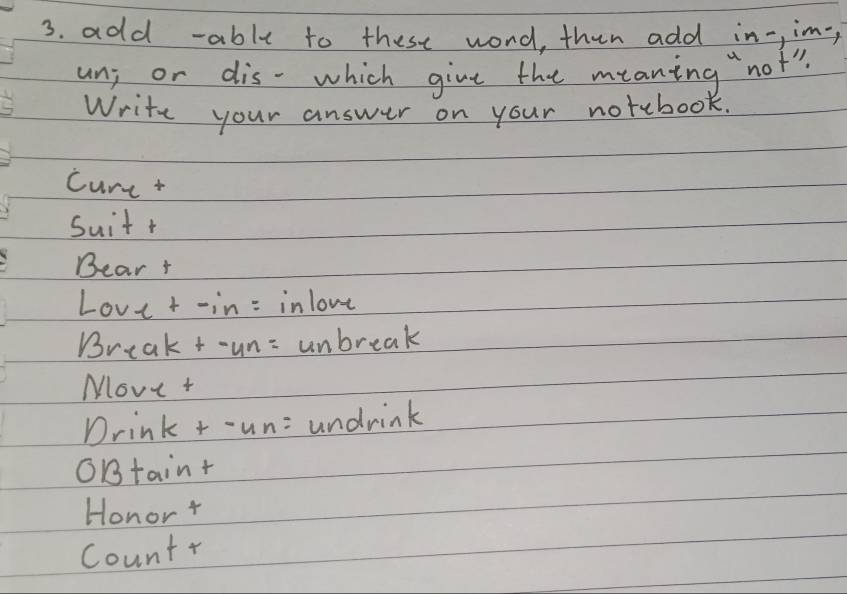 3. add -able to these word, then add in-, im-,
un-, or dis- which give the meaning "not".
Write your answer on your notebook.
Cure +
Suit +
Bear +
Love + -in = inlove
Break + -un = unbreak
Move +
Drink + -un = undrink
OBtain +
Honor +
Count +